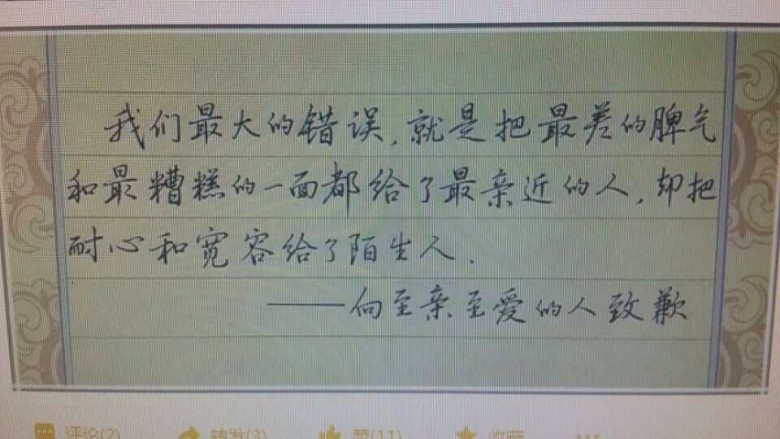 我们最大的错误,就是把最差的脾气
和最糟糕的一面都给了最亲近的人,却把
耐心和宽容给了陌生人.
——向至亲至爱的人致歉
评论(2) 转发(3) 赞(11) 收藏